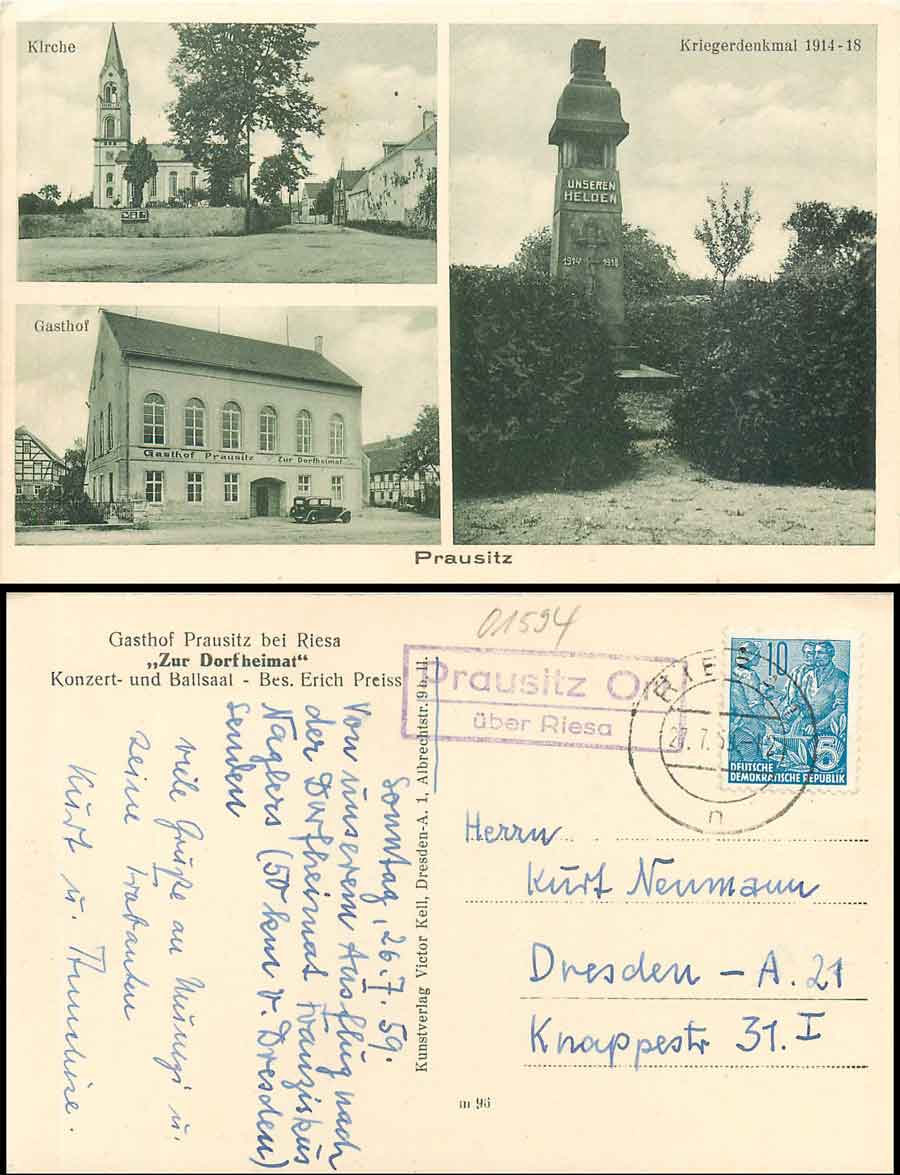 Kirche
Kriegerdenkmal 1914-18
UNSEREN
HELDEN
1914 1918
Gasthof
Gasthof Prausitz Zur Dorfheimat
Prausitz
01594
Gasthof Prausitz bei Riesa
„Zur Dorfheimat“
Konzert- und Ballsaal - Bes. Erich Preiss
Prausitz
über Riesa
RIESA
27.7.59
n
10
5
DEUTSCHE
DEMOKRATISCHE REPUBLIK
Sonntag, 26.7.59.
Von unserem Ausflug nach
der Dorfheimat Franziskus
Naglers (50 km v. Dresden)
senden
viele Grüße an u.
seine Trabanten
Kurt u.
Kunstverlag Victor Kell, Dresden-A. 1, Albrechtstr. 9 b. II.
Herrn
Kurt Neumann
Dresden - A. 21
Knappestr 31. I
m 96